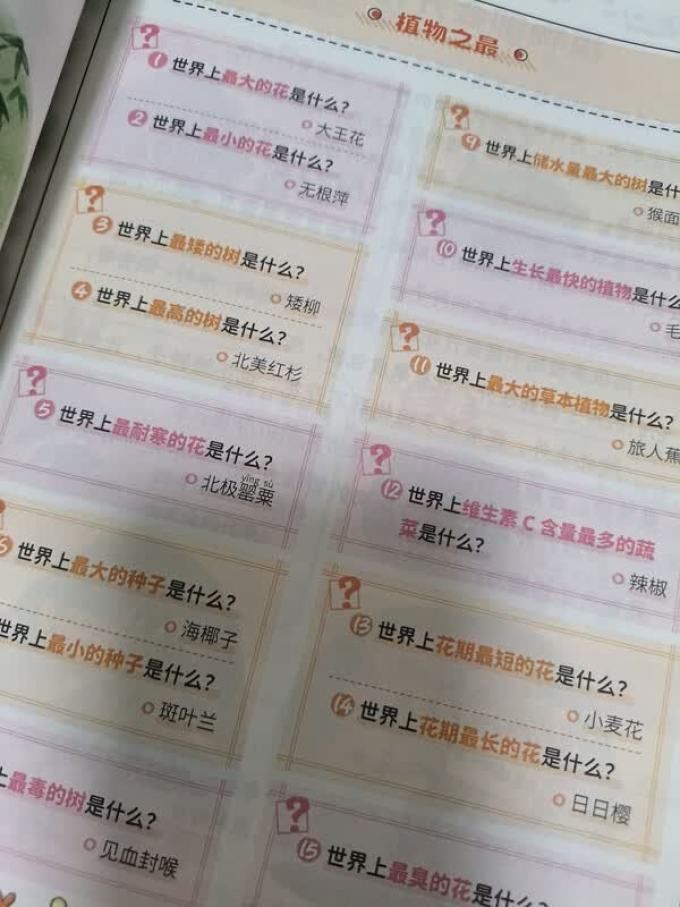 植物之最
① 世界上最大的花是什么?
大王花
② 世界上最小的花是什么?
无根萍
③ 世界上最矮的树是什么?
矮柳
④ 世界上最高的树是什么?
北美红杉
⑤ 世界上最耐寒的花是什么?
yīng sù
北极罂粟
世界上最大的种子是什么?
海椰子
世界上最小的种子是什么?
斑叶兰
上最毒的树是什么?
见血封喉
⑨ 世界上储水量最大的树是什
猴面
⑩ 世界上生长最快的植物是什么
毛
⑪ 世界上最大的草本植物是什么?
旅人蕉
⑫ 世界上维生素 C 含量最多的蔬
菜是什么?
辣椒
⑬ 世界上花期最短的花是什么?
小麦花
⑭ 世界上花期最长的花是什么?
日日樱
⑮ 世界上最臭的花是什么?